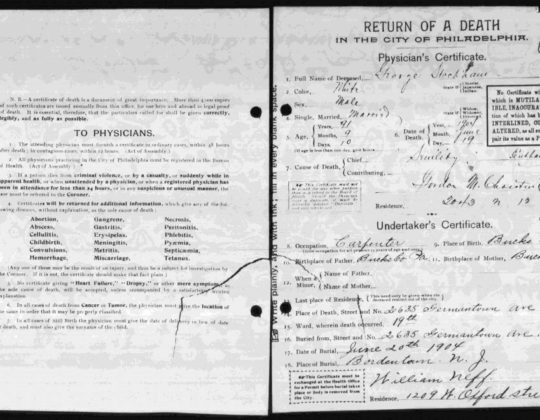 N. B.—A certificate of death is a document of great importance. More than 3000 copies
of such certificates are issued annually from this office, for use here and abroad in legal proof
of death. It is essential, therefore, that the particulars called for shall be given correctly,
legibly, and as fully as possible.
TO PHYSICIANS.
1. The attending physician must furnish a certificate in ordinary cases, within 48 hours
after death; in contagious cases, within 24 hours. (Act of Assembly.)
2. All physicians practicing in the City of Philadelphia must be registered in the Bureau
of Health. (Act of Assembly.)
3. If a person dies from criminal violence, or by a casualty, or suddenly while in
apparent health, or when unattended by a physician, or when a registered physician has
been in attendance for less than 24 hours, or in any suspicious or unusual manner, the
case must be referred to the Coroner.
4. Certificates will be returned for additional information, which give any of the
following diseases, without explanation, as the sole cause of death:
Abortion, Gangrene, Necrosis,
Abscess, Gastritis, Peritonitis,
Cellulitis, Erysipelas, Phlebitis,
Childbirth, Meningitis, Pyæmia,
Convulsions, Metritis, Septicæmia,
Hemorrhage, Miscarriage, Tetanus.
Any one of them may be the result of an injury, and thus be a subject for investigation by
the Coroner. If it is not, the certificate should make that fact plain.
5. No certificate giving "Heart Failure," "Dropsy," or other mere symptoms, as
the sole cause of death, will be accepted, unless accompanied by a satisfactory written
explanation.
6. In all cases of death from Cancer or Tumor, the physician must give the location of
the same in order that it may be properly classified.
7. In all cases of Still Birth the physician must give the date of delivery in lieu of date
of death, and must also give the surname of the child.
Write plainly, and with ink; fill in every blank space.
RETURN OF A DEATH
IN THE CITY OF PHILADELPHIA.
Physician's Certificate.
1. Full Name of Deceased, George
2. Color, White
3. Sex, Male
4. Single, Married, Married
5. Age, Years 41
Months 9
Days 10
6. Date of Death, Year
Month June
Day 19
7. Cause of Death, Chief
Contributing
Gordon M. Christine
Residence, 2043 N 12
No Certificate wi
which is MUTILA
IBLE, INACCURA
tion of which has b
INTERLINED, CO
ALTERED, as all s
pair its value as a P
Undertaker's Certificate.
8. Occupation, Carpenter 9. Place of Birth, Bucks
10. Birthplace of Father, Bucks Co Pa 11. Birthplace of Mother, Buc
12. When a Minor. Name of Father,
Name of Mother,
Last place of Residence,
14. Place of Death, Street and No. 2635 Germantown ave
15. Ward, wherein death occurred, 19th
16. Buried from, Street and No. 2635 Germantown ave
17. Date of Burial, June 20th 1904
18. Place of Burial, Bordentown N. J.
This Certificate must be
exchanged at the Health Office
for a Permit before burial takes
place or Body is removed from
the City
William Neff
Residence, 1209 W. Oxford stre